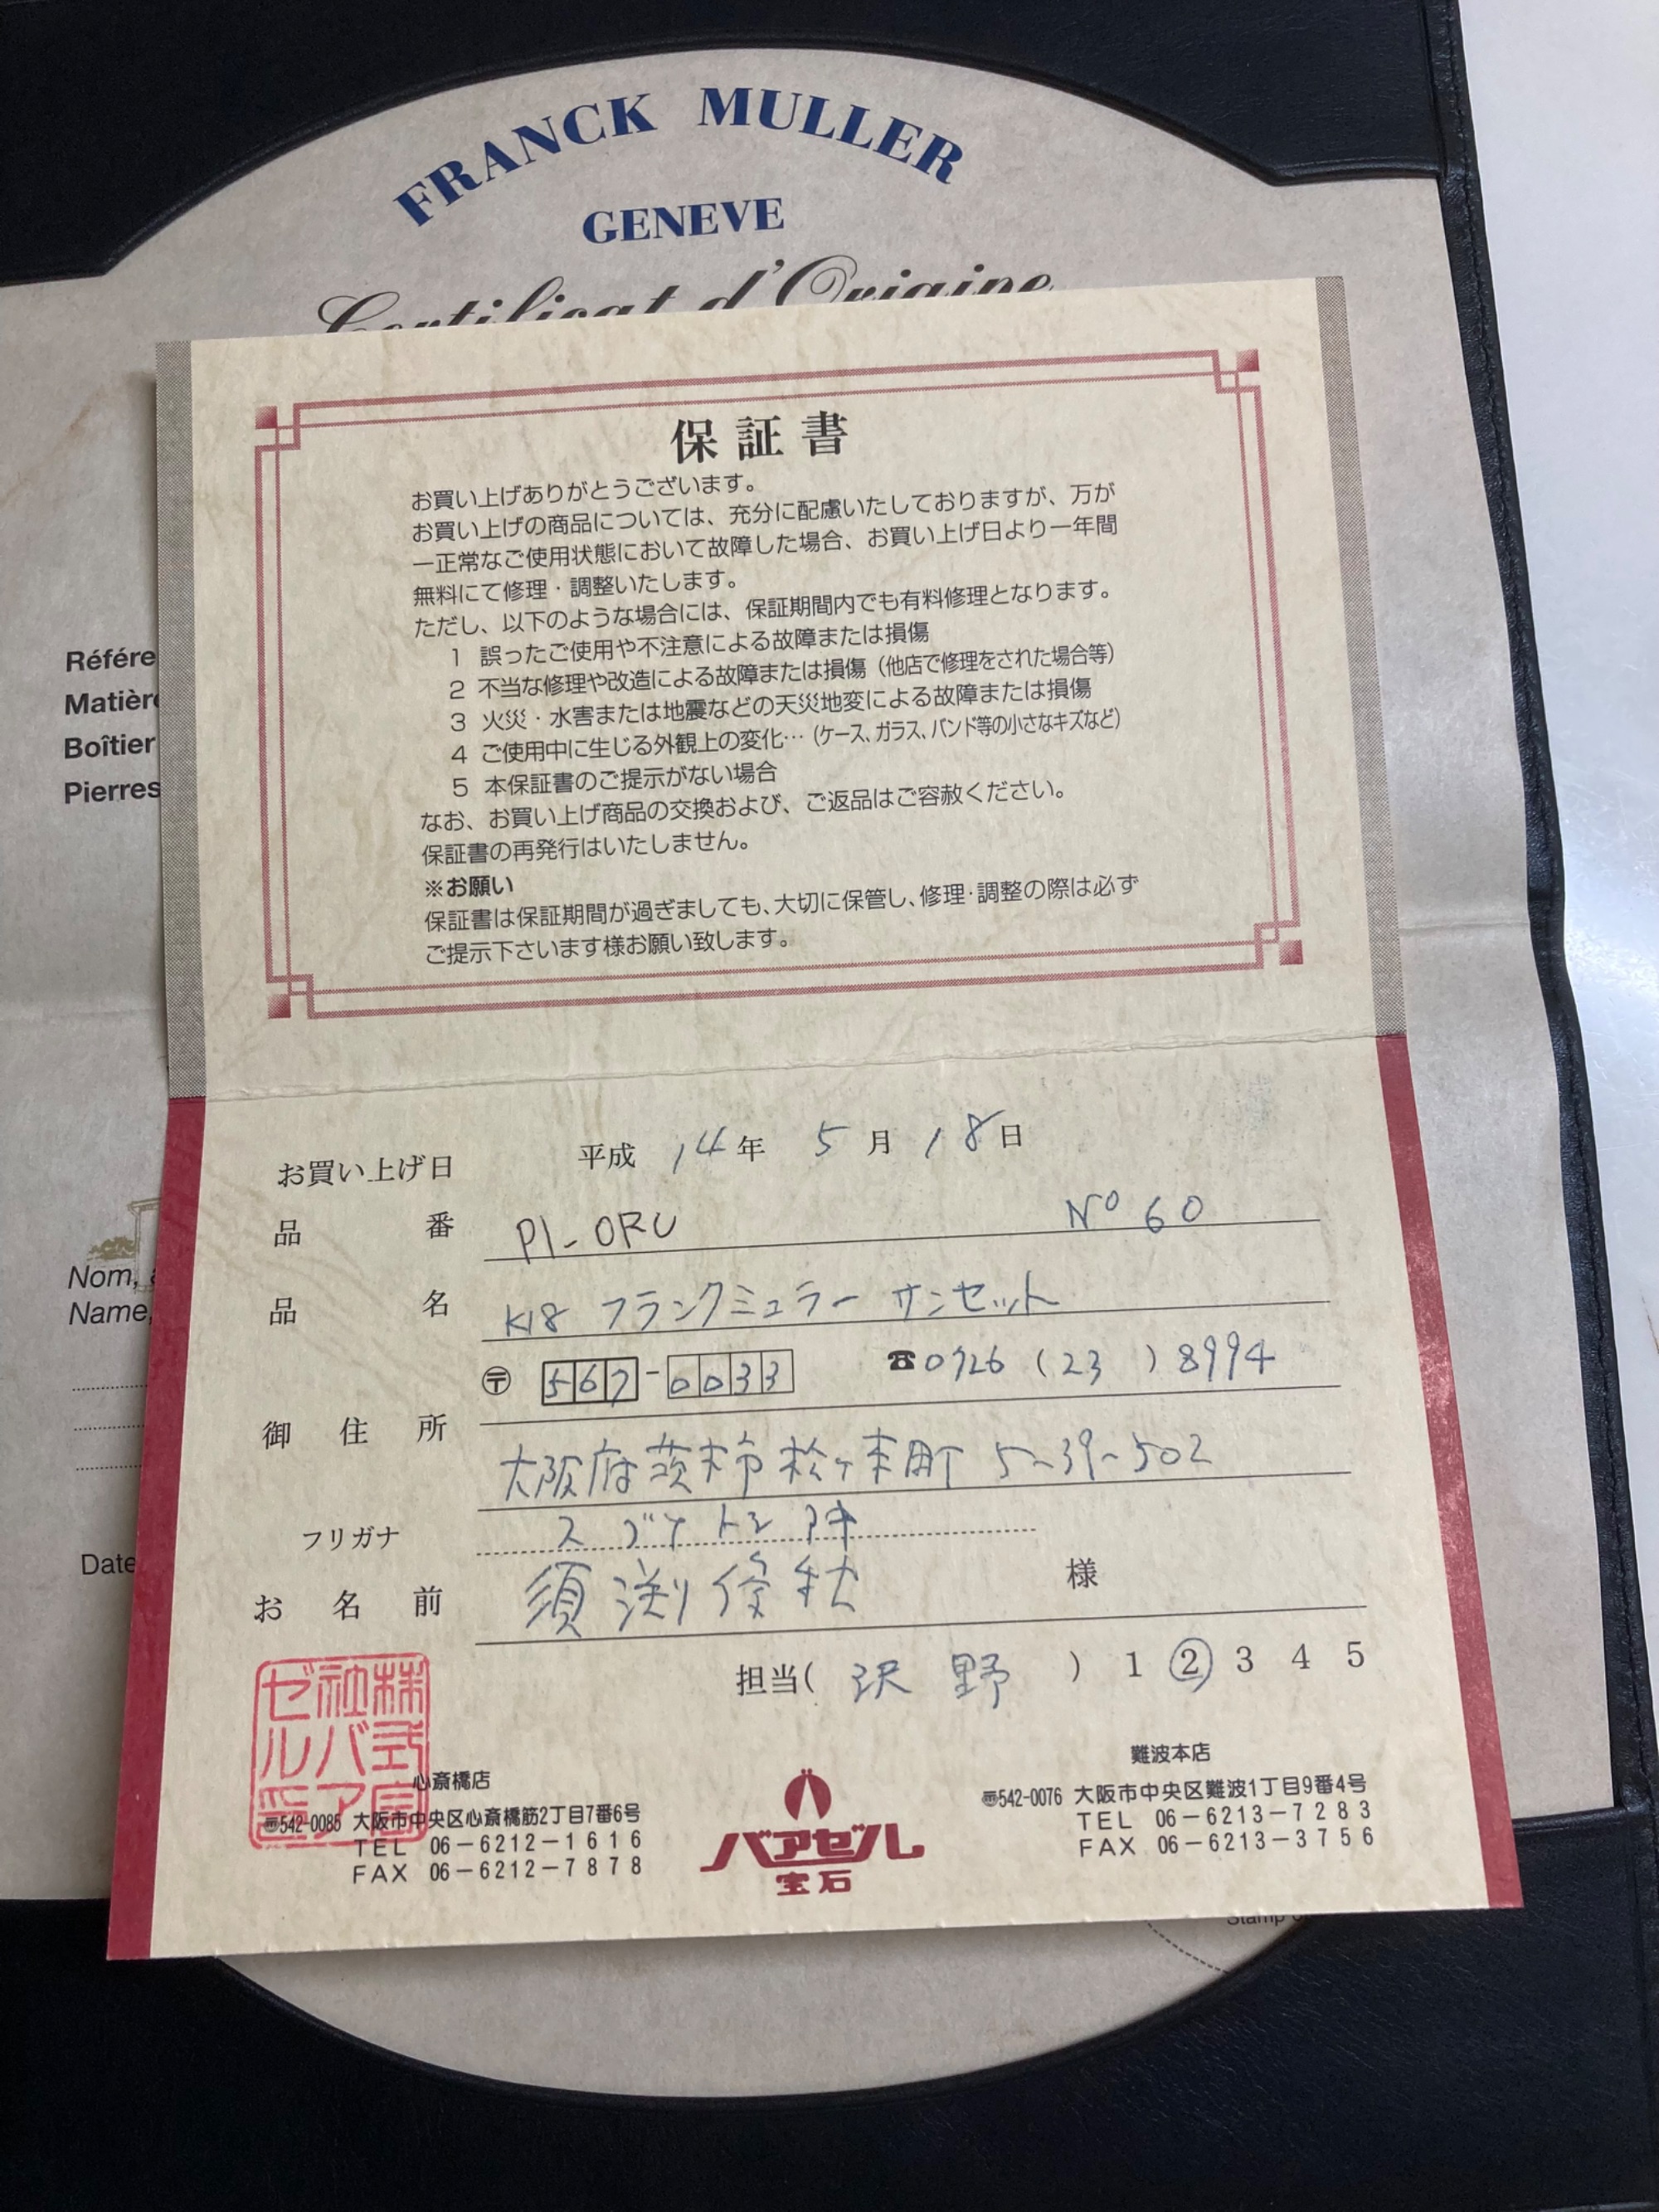 FRANCK MULLER
GENEVE
Certificat d'Origine
保証書
お買い上げありがとうございます。
お買い上げの商品については、充分に配慮いたしておりますが、万が
一正常なご使用状態において故障した場合、お買い上げ日より一年間
無料にて修理・調整いたします。
ただし、以下のような場合には、保証期間内でも有料修理となります。
1 誤ったご使用や不注意による故障または損傷
2 不当な修理や改造による故障または損傷（他店で修理をされた場合等）
3 火災・水害または地震などの天災地変による故障または損傷
4 ご使用中に生じる外観上の変化…（ケース、ガラス、バンド等の小さなキズなど）
5 本保証書のご提示がない場合
なお、お買い上げ商品の交換および、ご返品はご容赦ください。
保証書の再発行はいたしません。
※お願い
保証書は保証期間が過ぎましても、大切に保管し、修理・調整の際は必ず
ご提示下さいます様お願い致します。
Référe
Matière
Boîtier
Pierres
Nom,
Name,
Date
お買い上げ日 平成 14年 5月 18日
品番 PI-ORU No 60
品名 K18 フランクミュラー サンセット
〒 567-0033 ☎0726 (23) 8994
御住所 大阪府茨木市松ヶ本町 5-39-502
フリガナ スブチ トシアキ
お名前 須渕俊秋 様
担当(沢野) 1 ② 3 4 5
株式会社バアゼル印
心斎橋店
〒542-0085 大阪市中央区心斎橋筋2丁目7番6号
TEL 06-6212-1616
FAX 06-6212-7878
バアゼル
宝石
難波本店
〒542-0076 大阪市中央区難波1丁目9番4号
TEL 06-6213-7283
FAX 06-6213-3756
Stamp